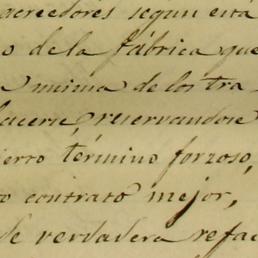 acreedores segun está
o de la fábrica que
a misma de los tra
hacerse, reservandose
ierro término forzoso,
o contrato mejor,
de verdadera refac